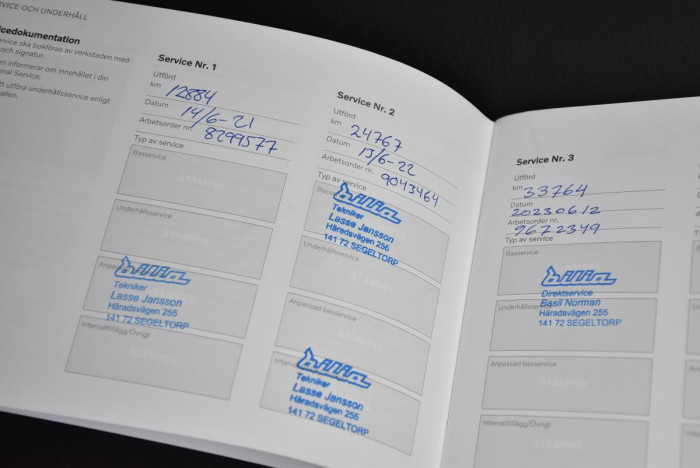 SERVICE OCH UNDERHÅLL
cedokumentation
ervice ska bokföras av verkstaden med
och signatur.
n informerar om innehållet i din
inal Service.
tt utföra underhållsservice enligt
allen.
Service Nr. 1
Utförd
km 12884
Datum 14/6-21
Arbetsorder nr. 8299577
Typ av service
Basservice
STÄMPEL
Underhållsservice
STÄMPEL
Anpa
bilia
Tekniker
Lasse Jansson
Häradsvägen 255
141 72 SEGELTORP
Intervalltillägg/Övrigt
STÄMPEL
Service Nr. 2
Utförd
km 24767
Datum 13/6-22
Arbetsorder nr. 9043464
Typ av service
Basservice
bilia
Tekniker
Lasse Jansson
Häradsvägen 255
141 72 SEGELTORP
Underhållsservice
Anpassad basservice
bilia
Tekniker
Lasse Jansson
Häradsvägen 255
141 72 SEGELTORP
Service Nr. 3
Utförd
km 33764
Datum 20230612
Arbetsorder nr. 9672349
Typ av service
Basservice
bilia
Direktservice
Basil Norman
Häradsvägen 255
141 72 SEGELTORP
Underhållsservice
Anpassad basservice
STÄMPEL
Intervalltillägg/Övrigt
STÄMPEL